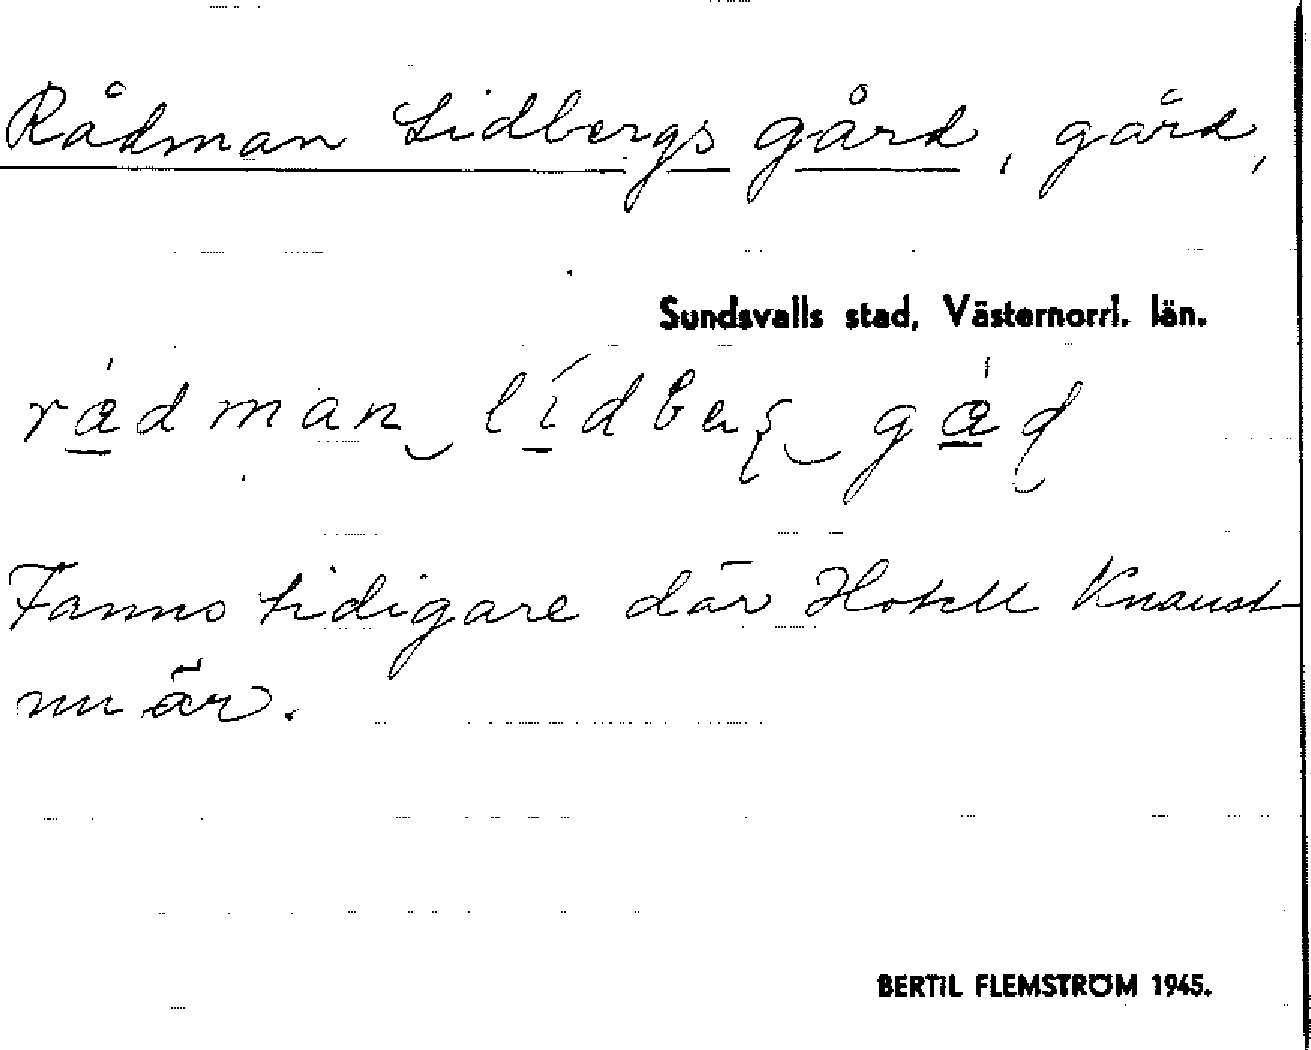 Rådman Lidbergs gård, gård,
Sundsvalls stad, Västernorrl. län.
Fanns tidigare där Hotell Knaust
nu är.
BERTIL FLEMSTRÖM 1945.